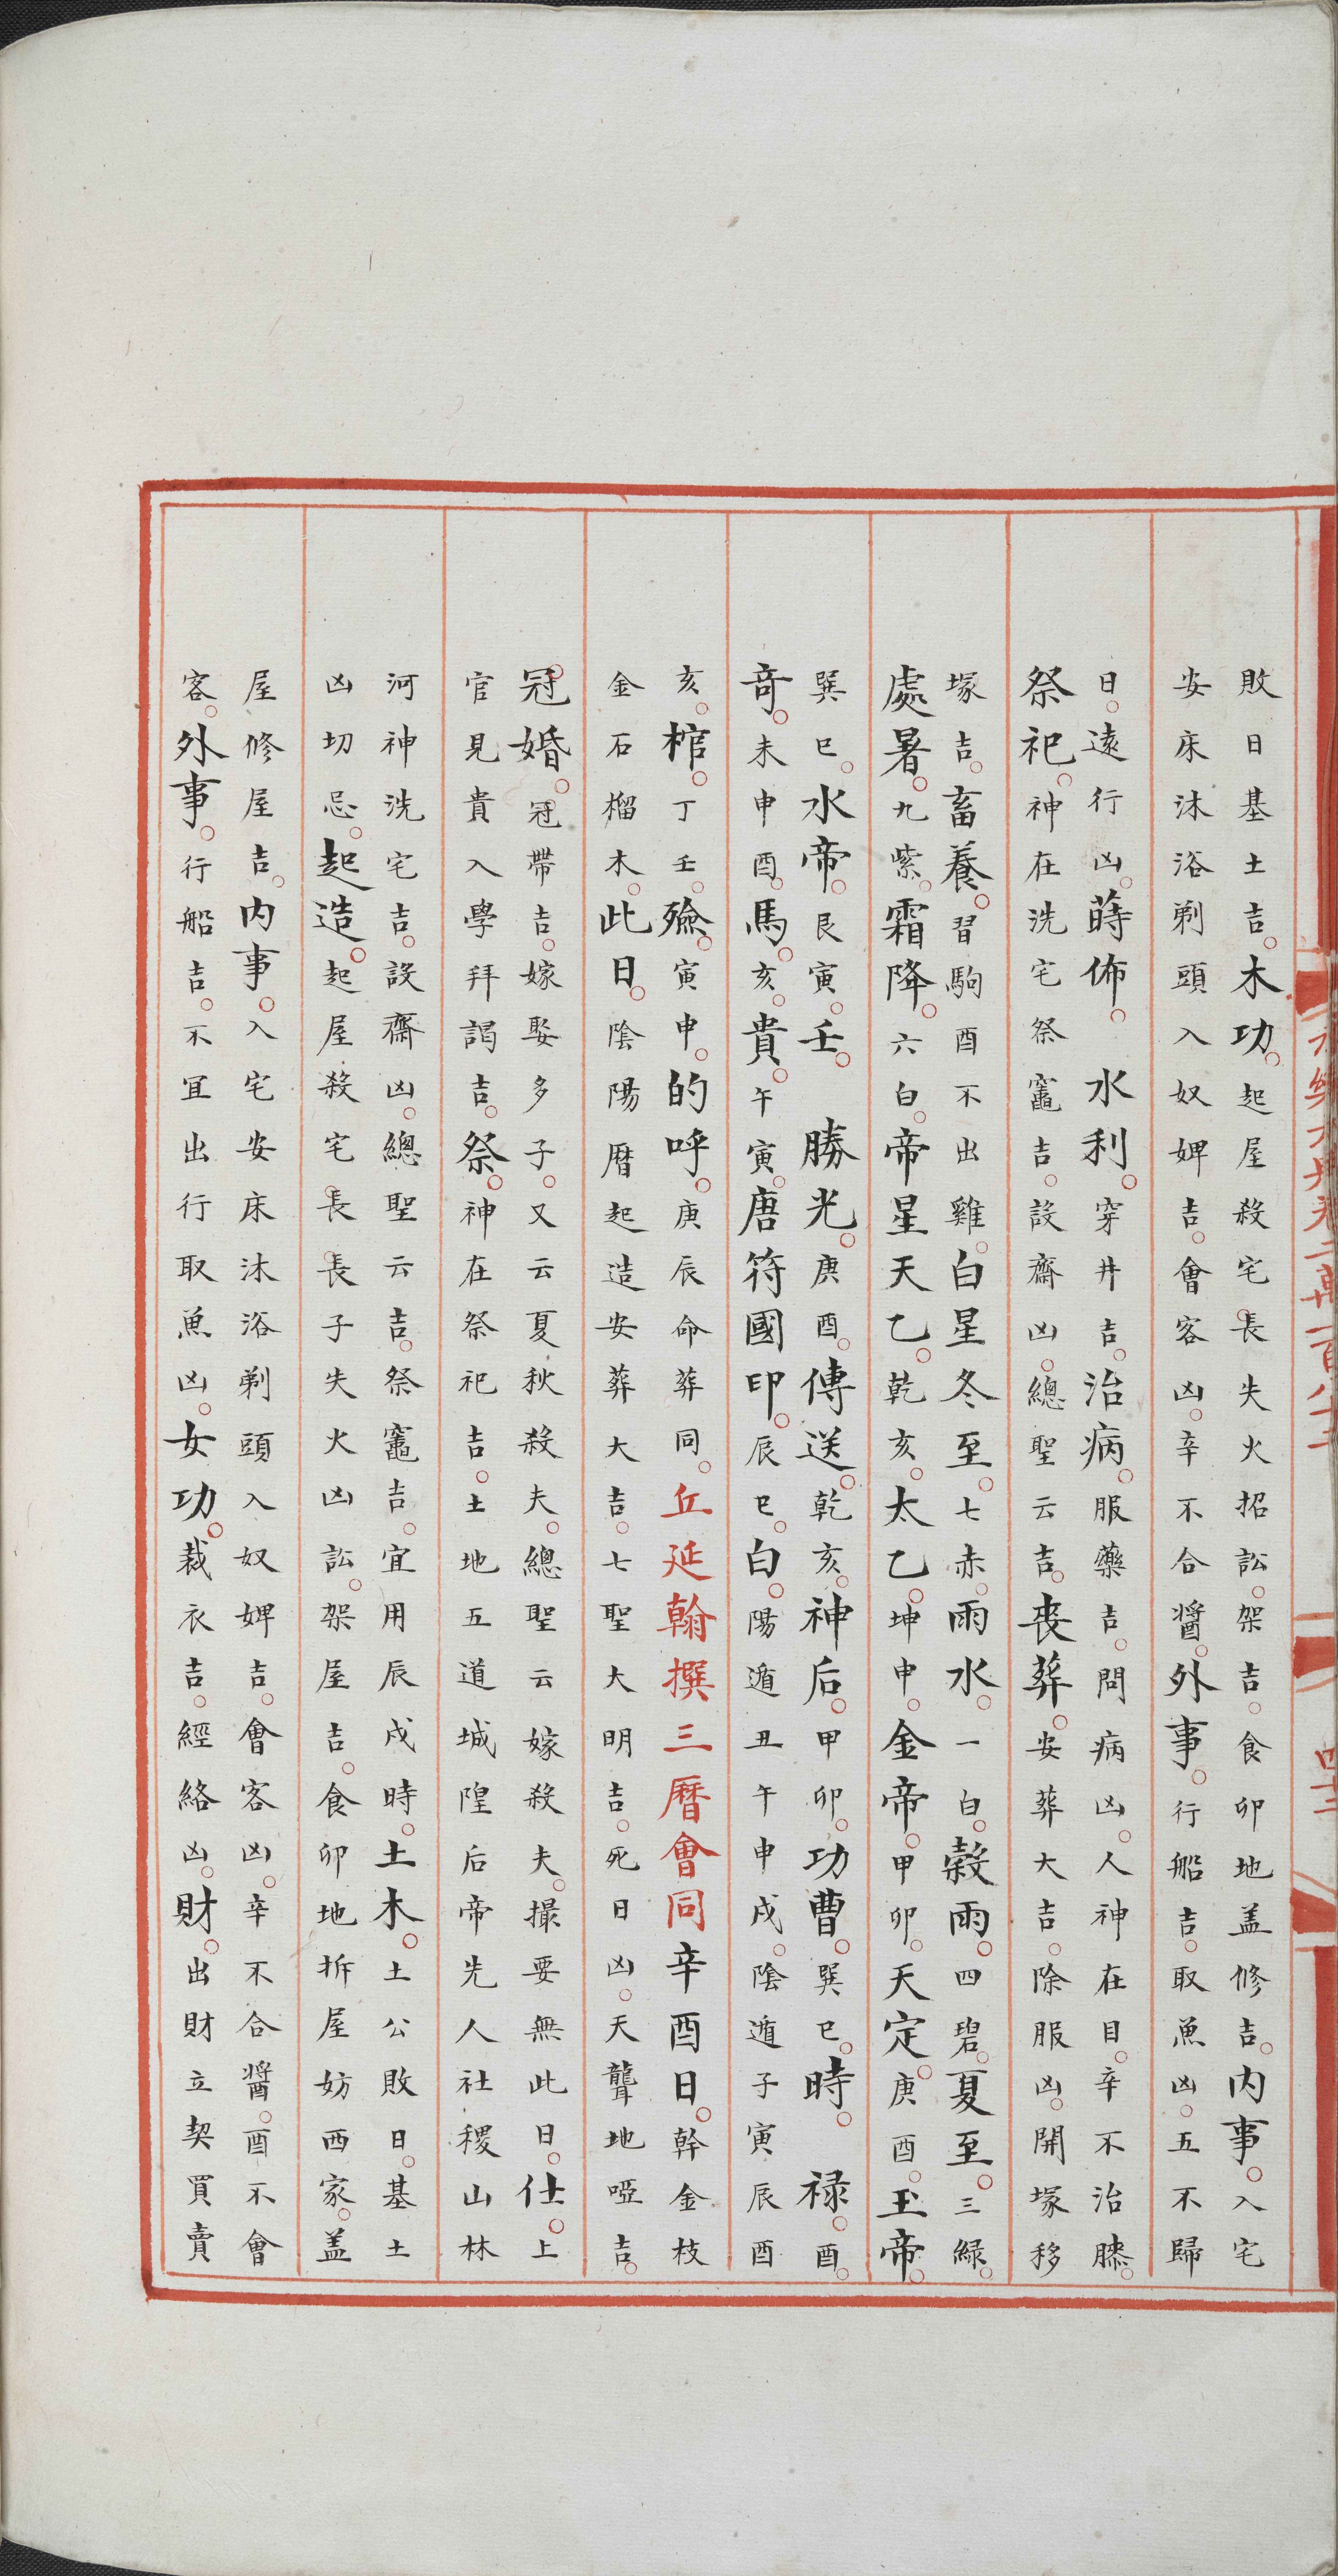 敗日基土吉木功起屋殺宅長失火招訟架吉食卯地盖修吉内事入宅
安床沐浴剃頭入奴婢吉會客凶辛不合醬外事行船吉取魚凶五不歸
日遠行凶蒔佈水利穿井吉治病服藥吉問病凶人神在目辛不治膝
祭祀神在洗宅祭竈吉設齋凶總聖云吉丧葬安葬大吉除服凶開塚移
塚吉畜養習駒酉不出雞白星冬至七赤雨水一白榖雨四碧夏至三緑
處暑九紫霜降六白帝星天乙乾亥太乙坤申金帝甲卯天定庚酉玉帝
巽巳水帝艮寅壬勝光庚酉傳送乾亥神后甲卯功曹巽巳時禄酉
竒未申酉馬亥貴午寅唐符國印辰巳白陽遁丑午申戌陰遁子寅辰酉
亥棺丁壬殮寅申的呼庚辰命葬同丘延翰撰三曆會同辛酉日幹金枝
金石榴木此日陰陽曆起造安葬大吉七聖大明吉死日凶天聾地啞吉
冠婚冠帶吉嫁娶多子又云夏秋殺夫總聖云嫁殺夫撮要無此日仕上
官見貴入學拜謁吉祭神在祭祀吉土地五道城隍后帝先人社稷山林
河神洗宅吉設齋凶總聖云吉祭竈吉宜用辰戌時土木土公敗日基土
凶切忌起造起屋殺宅長長子失火凶訟架屋吉食卯地拆屋妨西家盖
屋修屋吉内事入宅安床沐浴剃頭入奴婢吉會客凶辛不合醬酉不會
客外事行船吉不宜出行取魚凶女功裁衣吉經絡凶財出財立契買賣